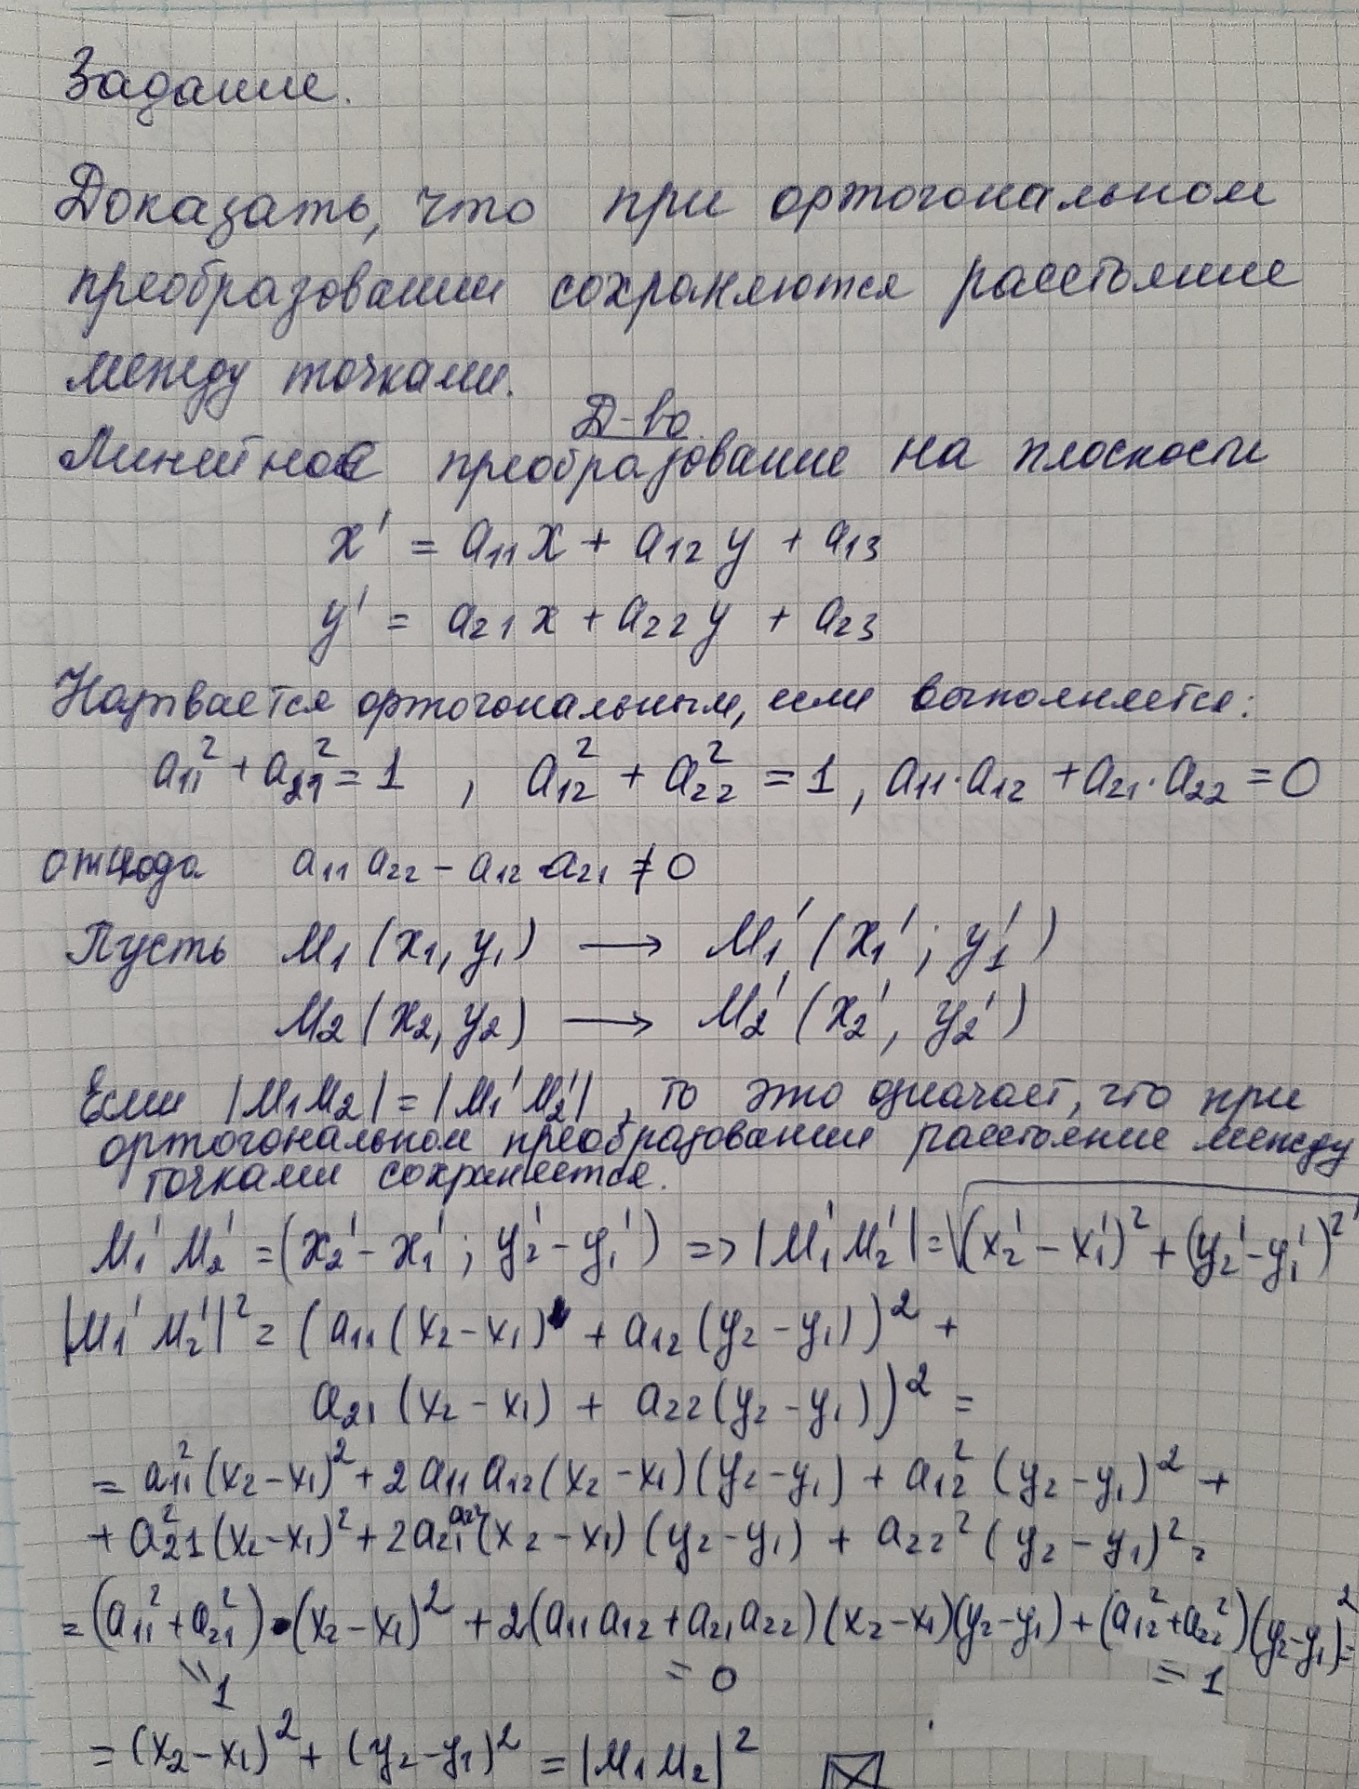 Задание.
Доказать, что при ортогональном
преобразовании сохраняются расстояние
между точками.
Д-во.
Линейное преобразование на плоскости
x' = a₁₁x + a₁₂y + a₁₃
y' = a₂₁x + a₂₂y + a₂₃
Называется ортогональным, если выполняется:
a₁₁² + a₂₁² = 1 , a₁₂² + a₂₂² = 1, a₁₁·a₁₂ + a₂₁·a₂₂ = 0
откуда a₁₁ a₂₂ - a₁₂ a₂₁ ≠ 0
Пусть M₁(x₁, y₁) → M₁'(x₁'; y₁')
M₂(x₂, y₂) → M₂'(x₂', y₂')
Если |M₁M₂| = |M₁'M₂'|, то это означает, что при
ортогональном преобразовании расстояние между
точками сохраняется.
M₁'M₂' = (x₂' - x₁'; y₂' - y₁') => |M₁'M₂'| = √(x₂' - x₁')² + (y₂' - y₁')²
|M₁'M₂'|² = (a₁₁(x₂ - x₁) + a₁₂(y₂ - y₁))² +
a₂₁(x₂ - x₁) + a₂₂(y₂ - y₁))² =
= a₁₁²(x₂ - x₁)² + 2a₁₁a₁₂(x₂ - x₁)(y₂ - y₁) + a₁₂²(y₂ - y₁)² +
+ a₂₁²(x₂ - x₁)² + 2a₂₁a₂₂(x₂ - x₁)(y₂ - y₁) + a₂₂²(y₂ - y₁)² =
= (a₁₁² + a₂₁²)·(x₂ - x₁)² + 2(a₁₁a₁₂ + a₂₁a₂₂)(x₂ - x₁)(y₂ - y₁) + (a₁₂² + a₂₂²)(y₂ - y₁)² =
= 1 = 0 = 1
= (x₂ - x₁)² + (y₂ - y₁)² = |M₁M₂|²